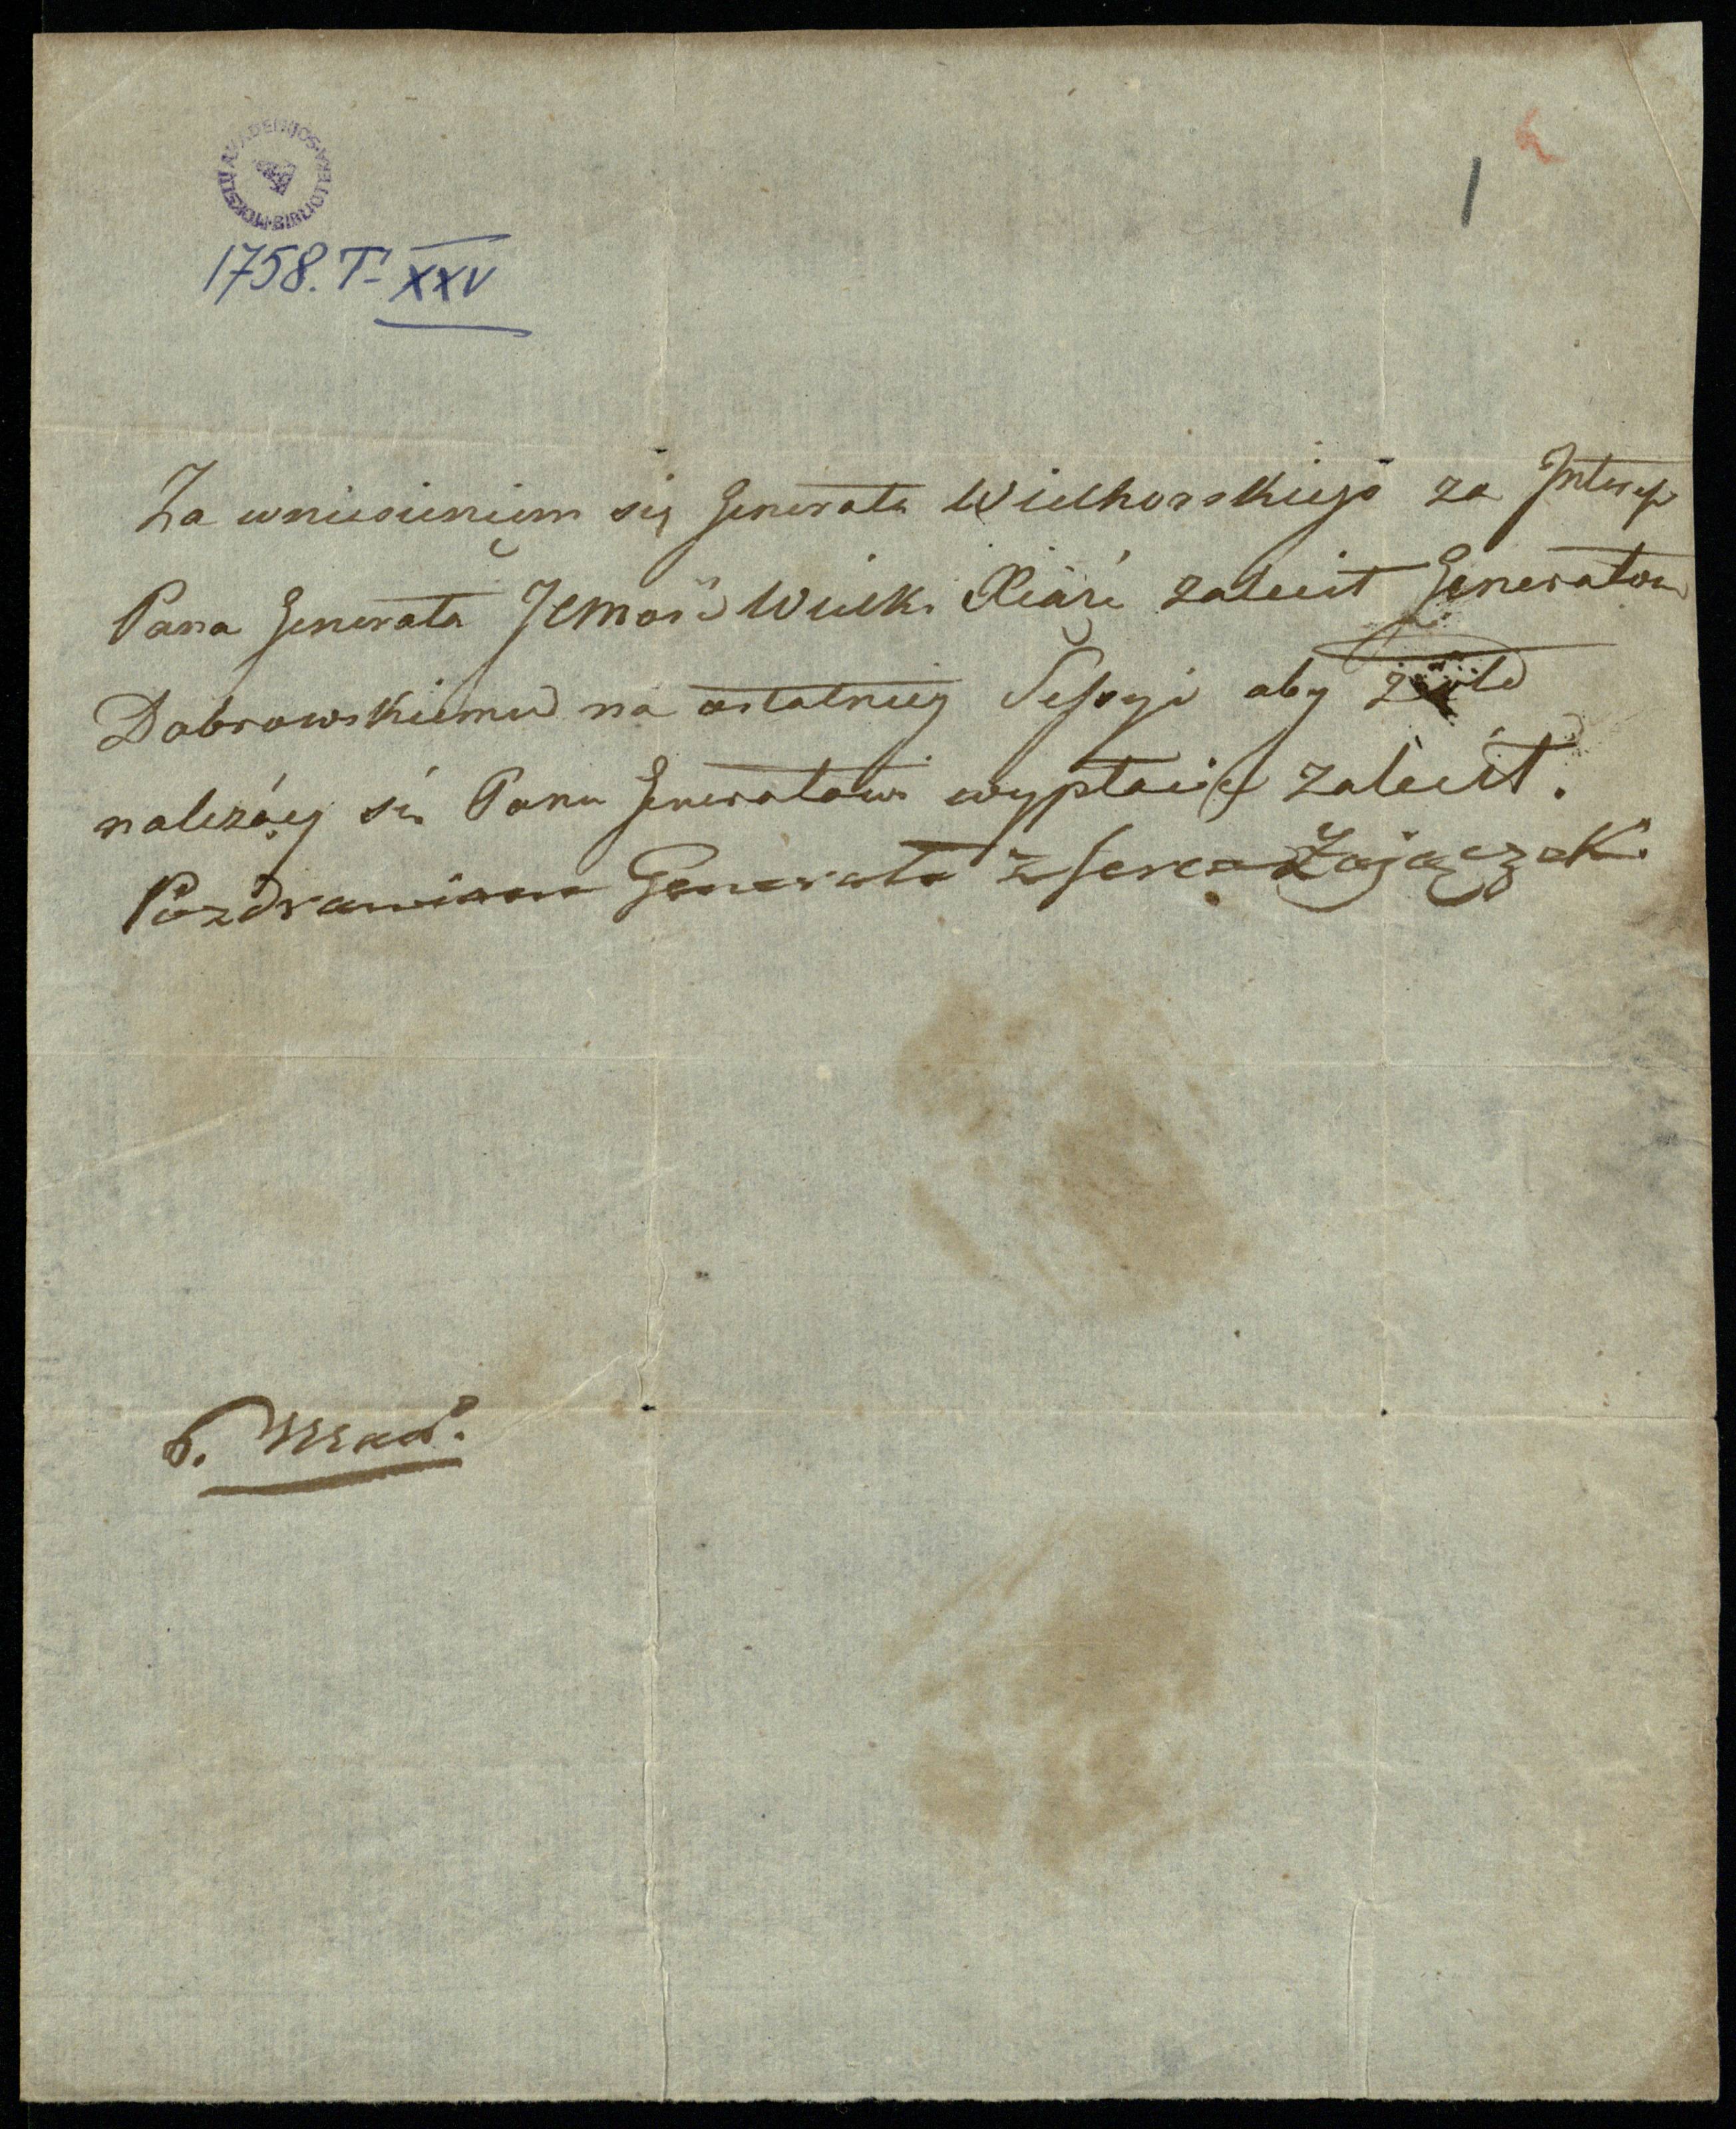 MOKSLŲ AKADEMIJOS BIBLIOTEKA
1
1758. T- XXV
Za wniesieniem się Generała Wielhorskiego za Interes
Pana Generała Jemość Wielk. Xiąże zalecił Generałowi
Dabrowskiemu na ostatniey Sessyi aby
należący się Panu Generałowi wypłacić zalecił.
Pozdrawiam Generała z serca Zajączek